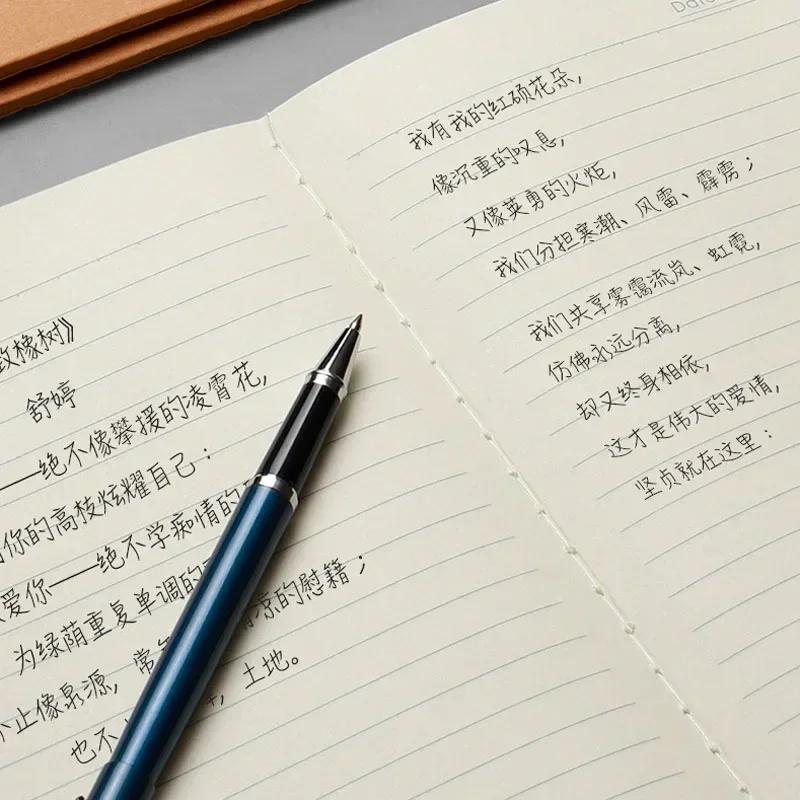 致橡树》
舒婷
——绝不像攀援的凌霄花,
你的高枝炫耀自己：
爱你——绝不学痴情的
为绿荫重复单调的
不止像泉源, 常 凉的慰籍；
也不 , 土地。
Date
我有我的红硕花朵,
像沉重的叹息,
又像英勇的火炬,
我们分担寒潮、风雷、霹雳；
我们共享雾霭流岚、虹霓,
仿佛永远分离,
却又终身相依,
这才是伟大的爱情,
坚贞就在这里：